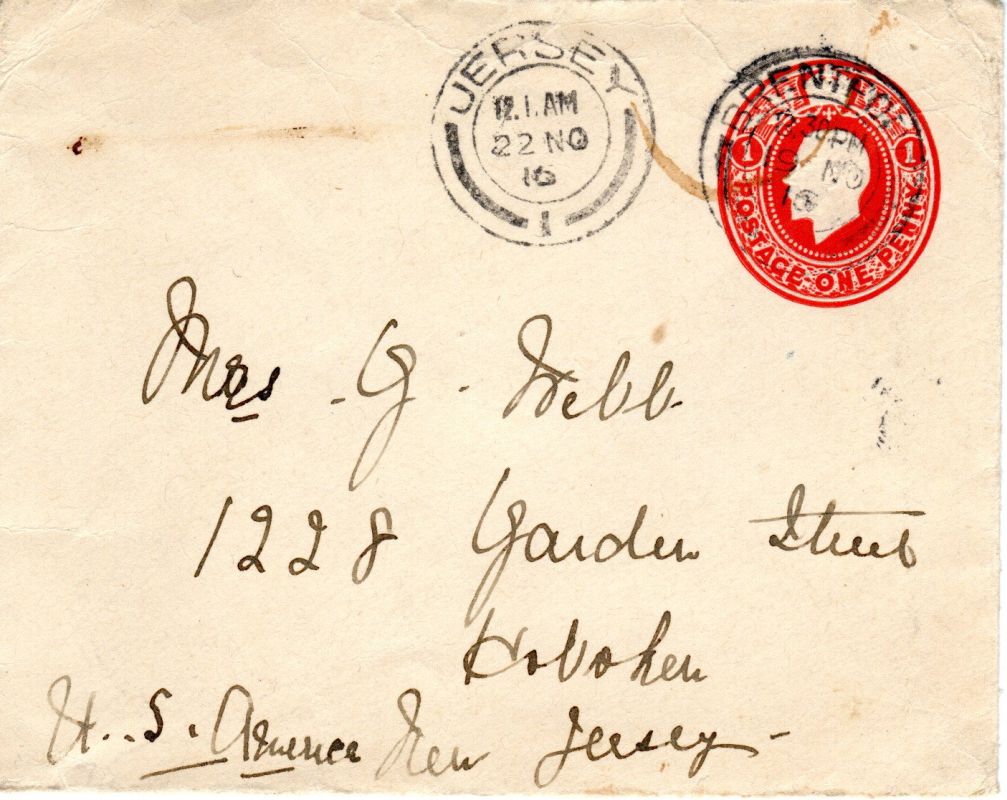 JERSEY
12.1.AM
22 NO
16
1
BRENTFO
30 PM
NO
1 1
POSTAGE ONE PENNY
Mrs. G. Webb
1228 Garden Street
Hoboken
U.S. America New Jersey